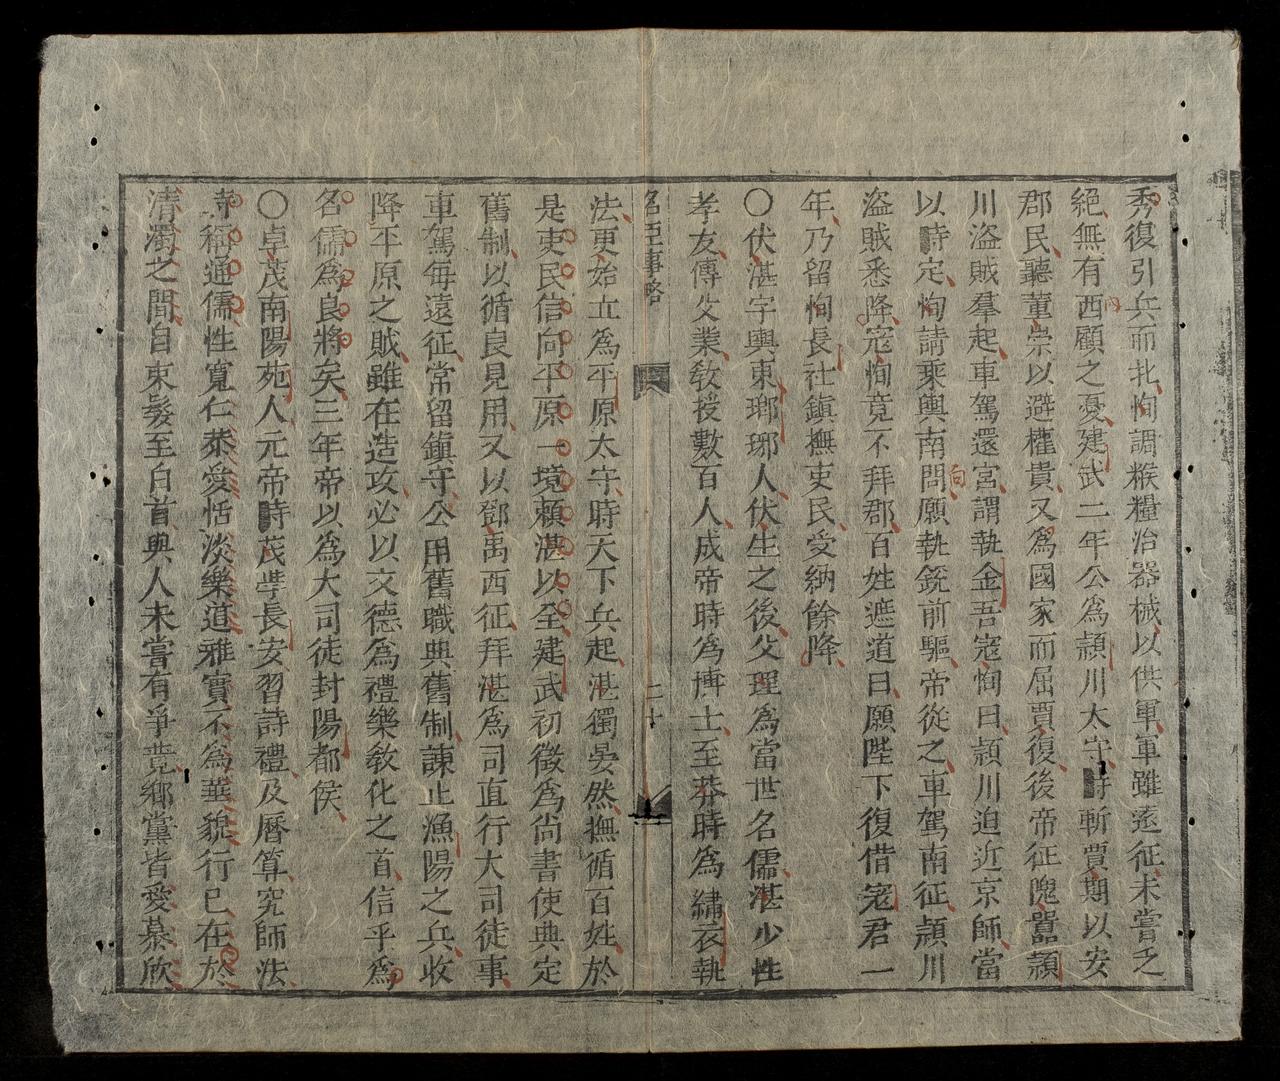 秀復引兵而北恂調糇糧治器械以供軍軍雖遠征未嘗乏
絕無有西顧之憂建武二年公為頴川太守時斬賈期以安
內
郡民聽董崇以避權貴又為國家而屈賈復後帝征隗囂頴
川盗賊羣起車駕還宮謂執金吾寇恂曰頴川迫近京師當
以時定恂請乘輿南問願執銳前驅帝從之車駕南征頴川
向
盗賊悉降寇恂竟不拜郡百姓遮道曰願陛下復借寇君一
年乃留恂長社鎮撫吏民受納餘降
〇伏湛字輿東瑯琊人伏生之後父理為當世名儒湛少性
孝友傳父業敎授數百人成帝時為博士至莽時為繡衣執
名臣事略 二十
法更始立為平原太守時天下兵起湛獨晏然撫循百姓於
是吏民信向平原一境頼湛以全建武初徵為尚書使典定
舊制以循良見用又以鄧禹西征拜湛為司直行大司徒事
車駕每遠征常留鎮守公用舊職典舊制諫止漁陽之兵收
降平原之賊雖在造攻必以文德為禮樂敎化之首信乎為
名儒為良將矣三年帝以為大司徒封陽都侯
〇卓茂南陽苑人元帝時茂學長安習詩禮及曆算究師法
時稱通儒性寬仁恭愛恬淡樂道雅實不為華貌行已在於
清濁之間自束髮至白首與人未嘗有爭競鄉黨皆愛慕欣